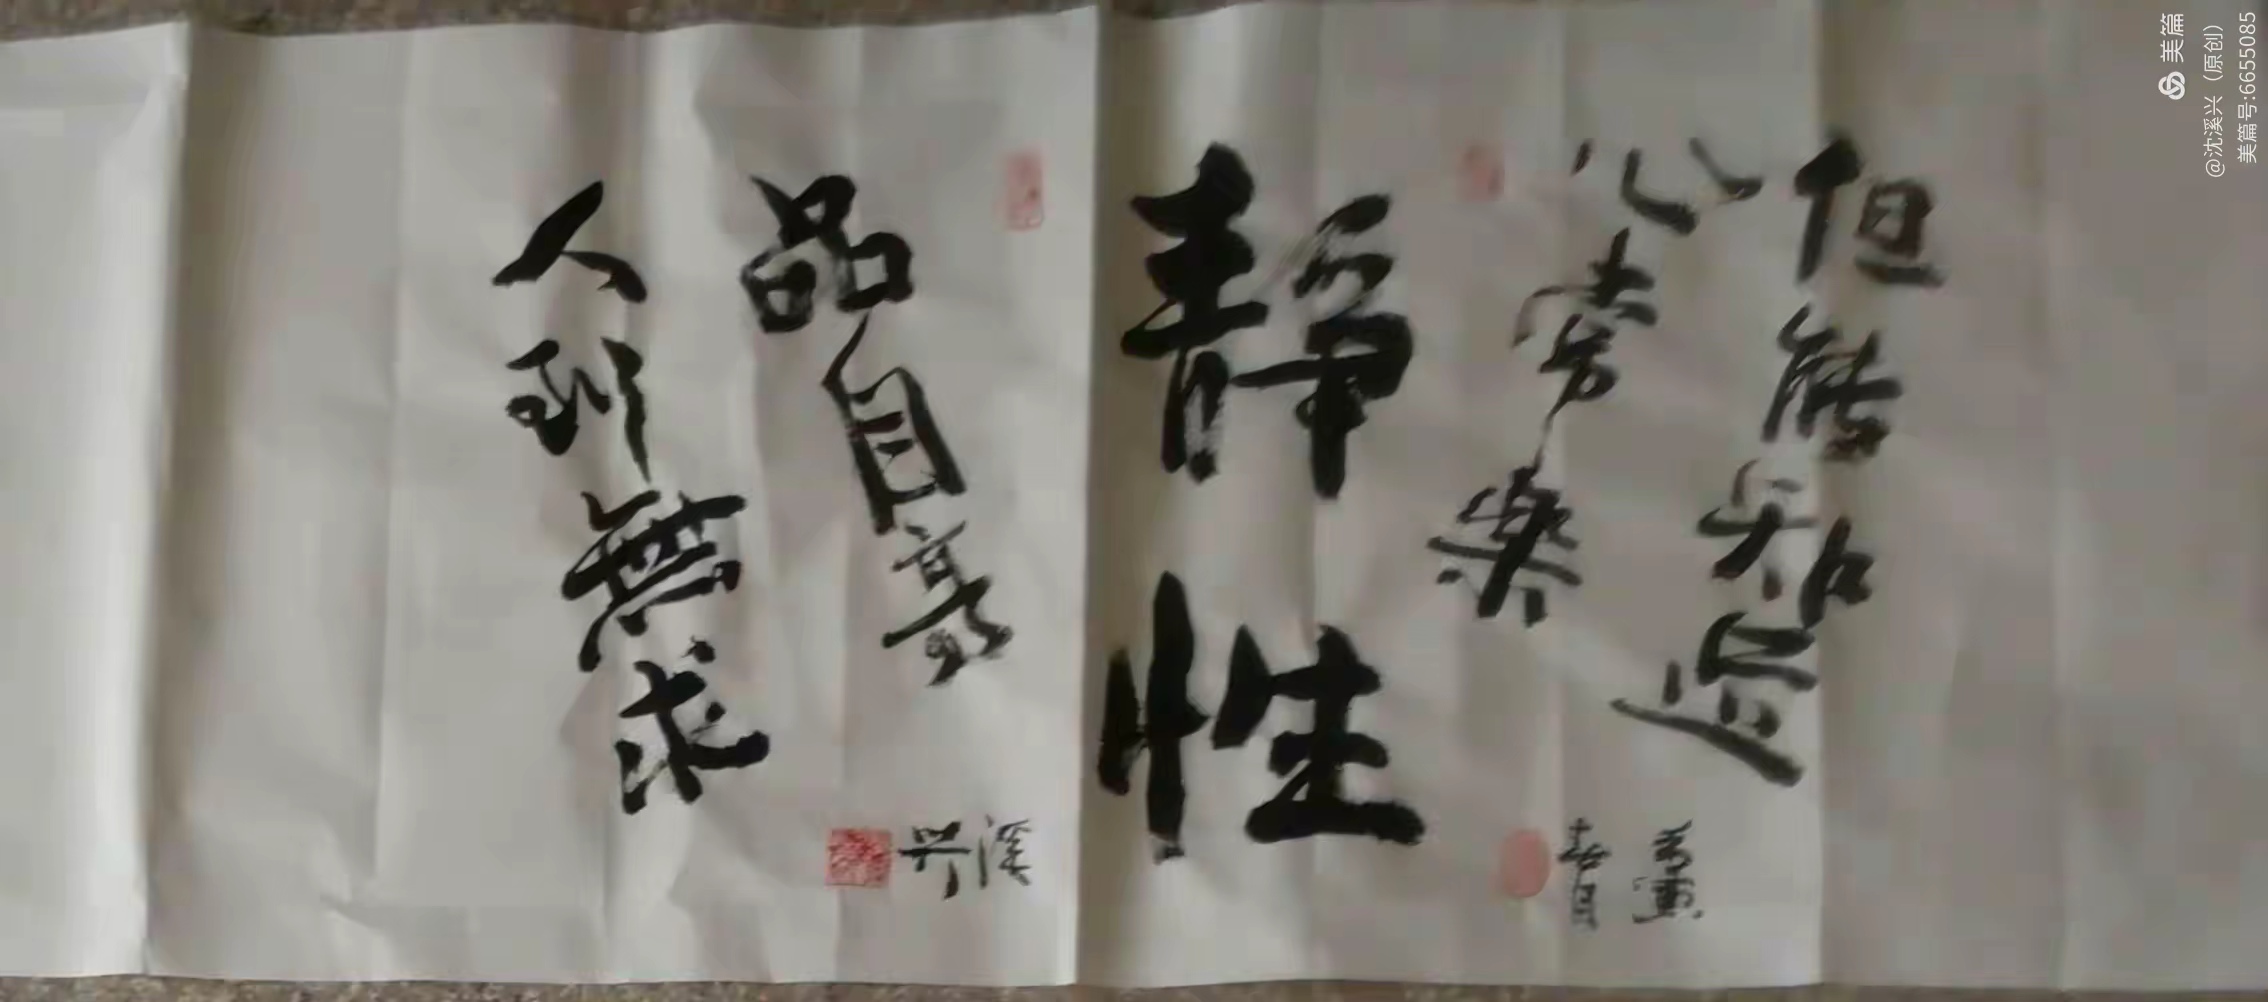 但能知足
心常樂
靜性
溪
興
品自高
人到無求
美篇
@沈溪兴（原创）
美篇号:6655085